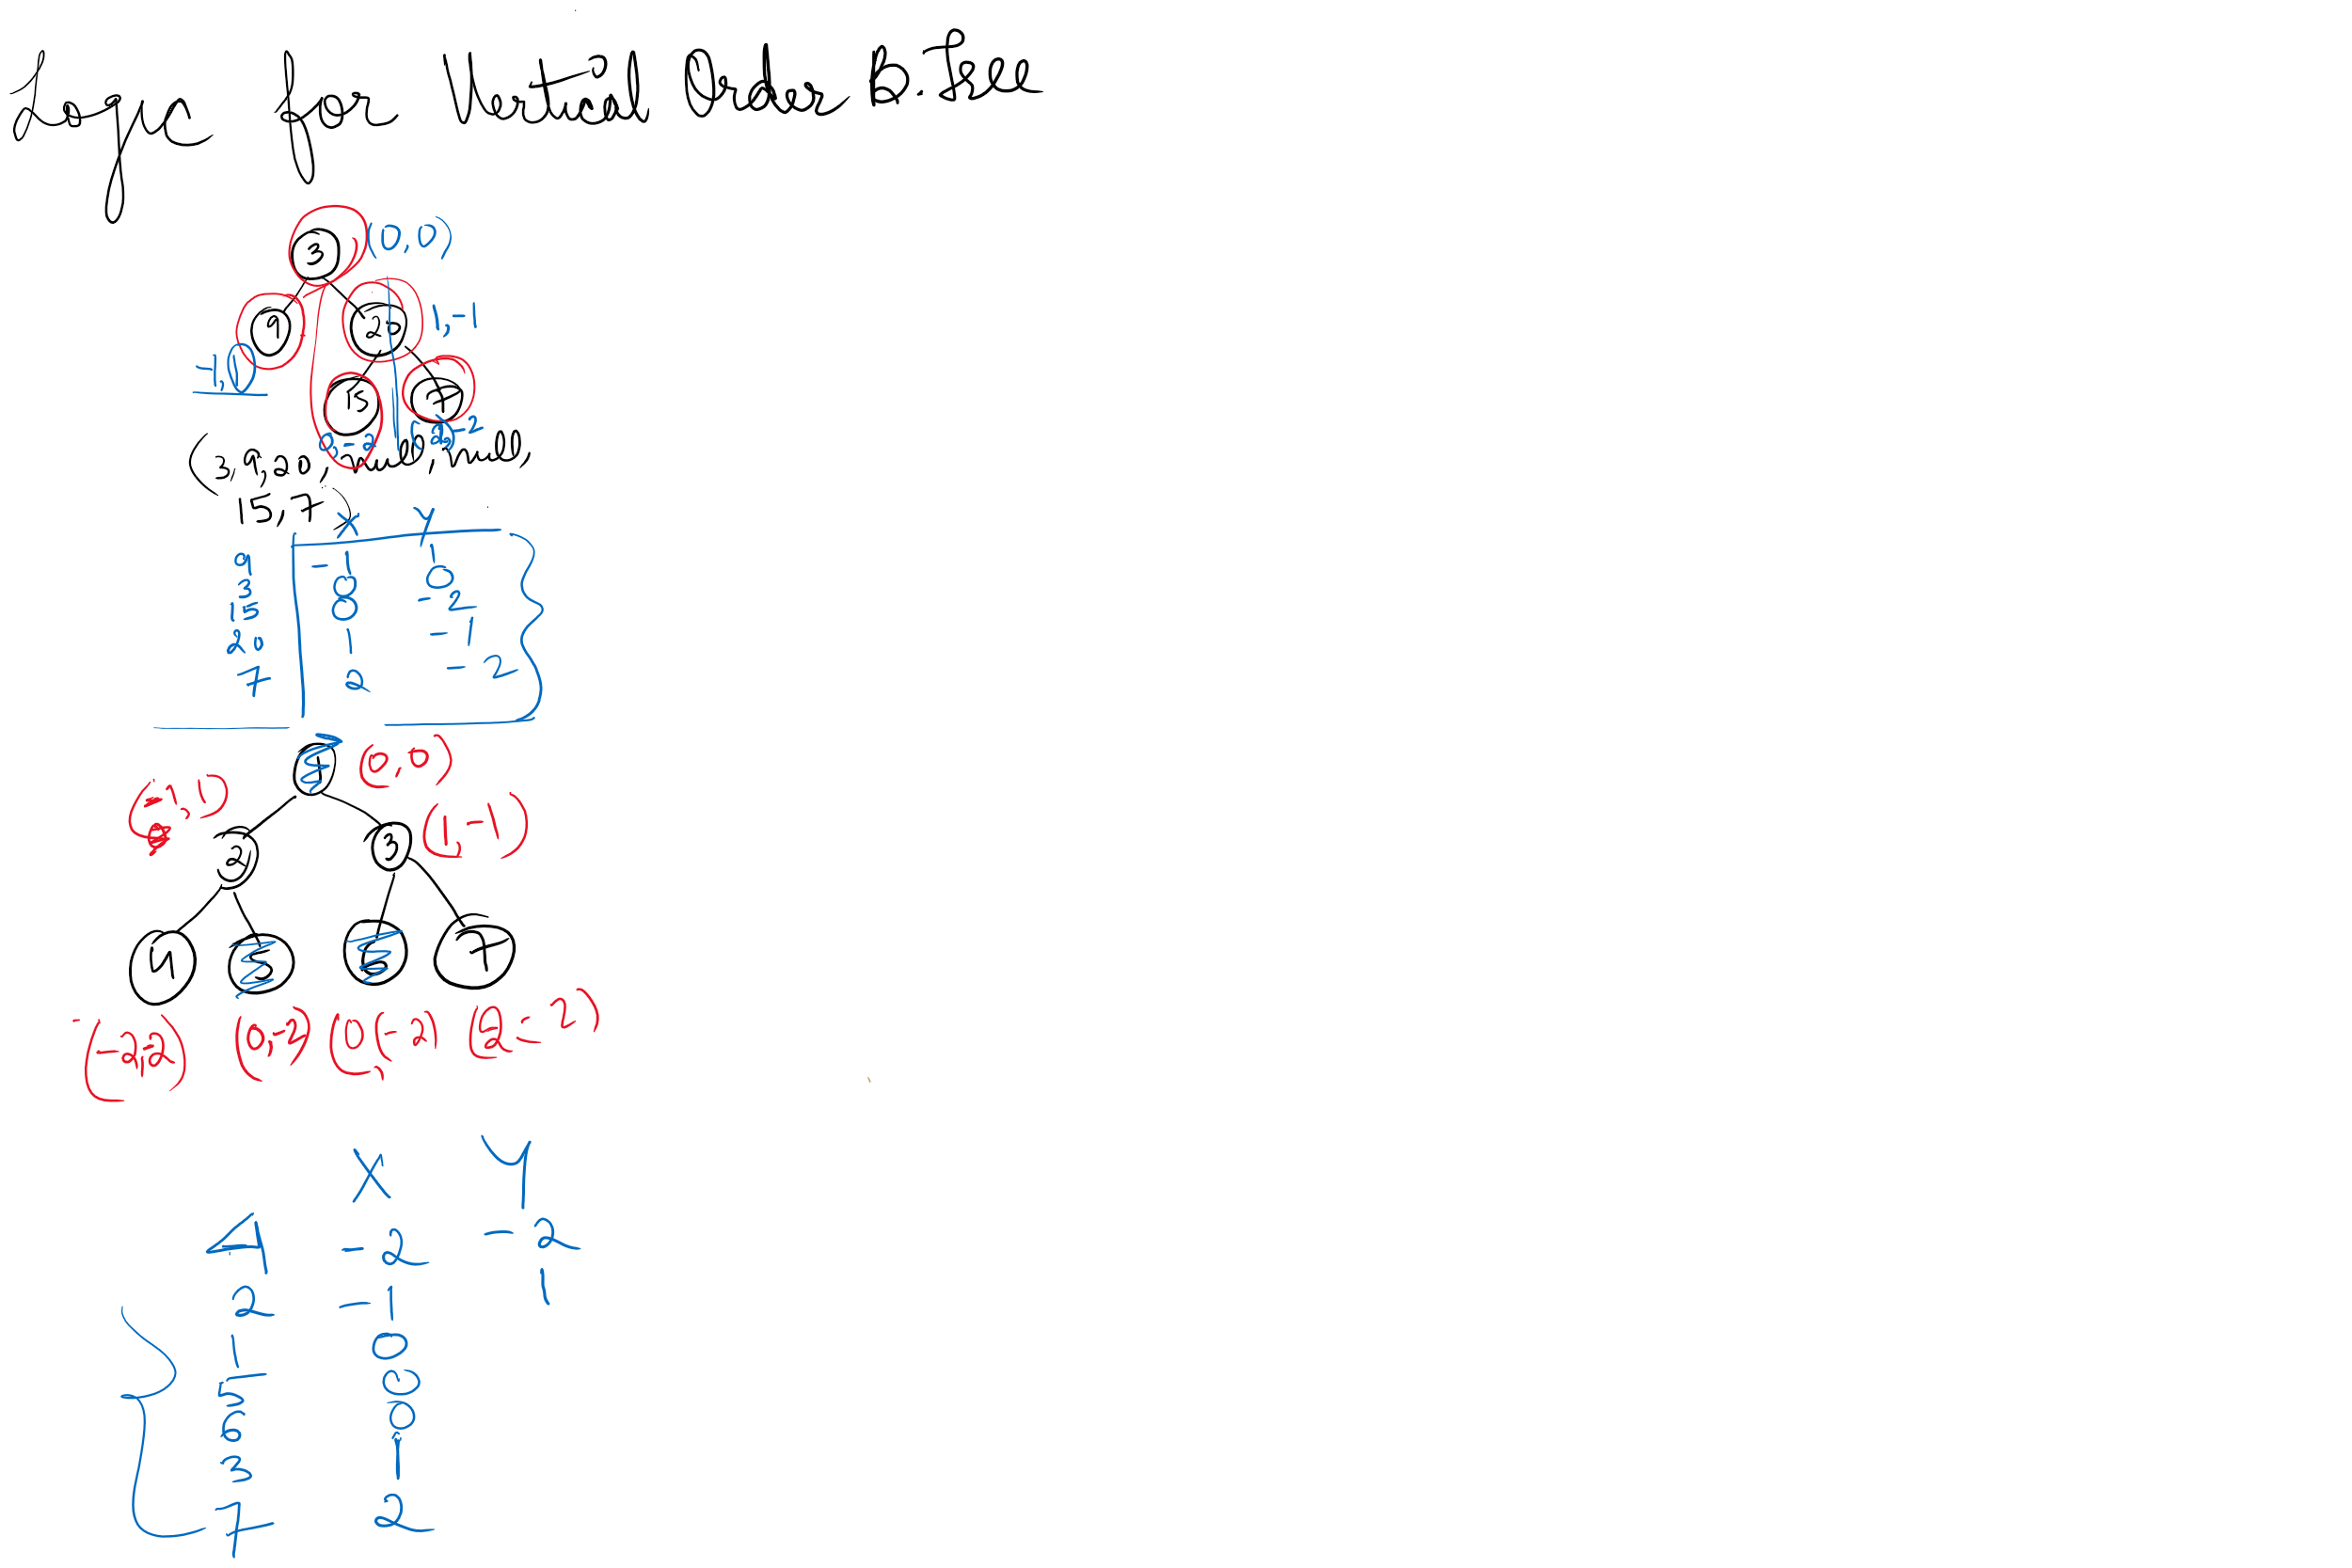 Logic for Vertical Order B.Tree
3 (0,0)
9 20 1,-1
-1,1
15 7
0,-2 -2
(3,9,20, null, null,
15,7)
X Y
9 -1 1
3 0 0
15 0 -2
20 1 -1
7 2 -2
1 (0,0)
(-1,1)
2 3 (1,-1)
4 5 6 7
(-2,2) (0,-2) (0,-2) (2,-2)
X Y
4 -2 -2
2 -1 1
1 0
5 0
6 0
3 1
7 2